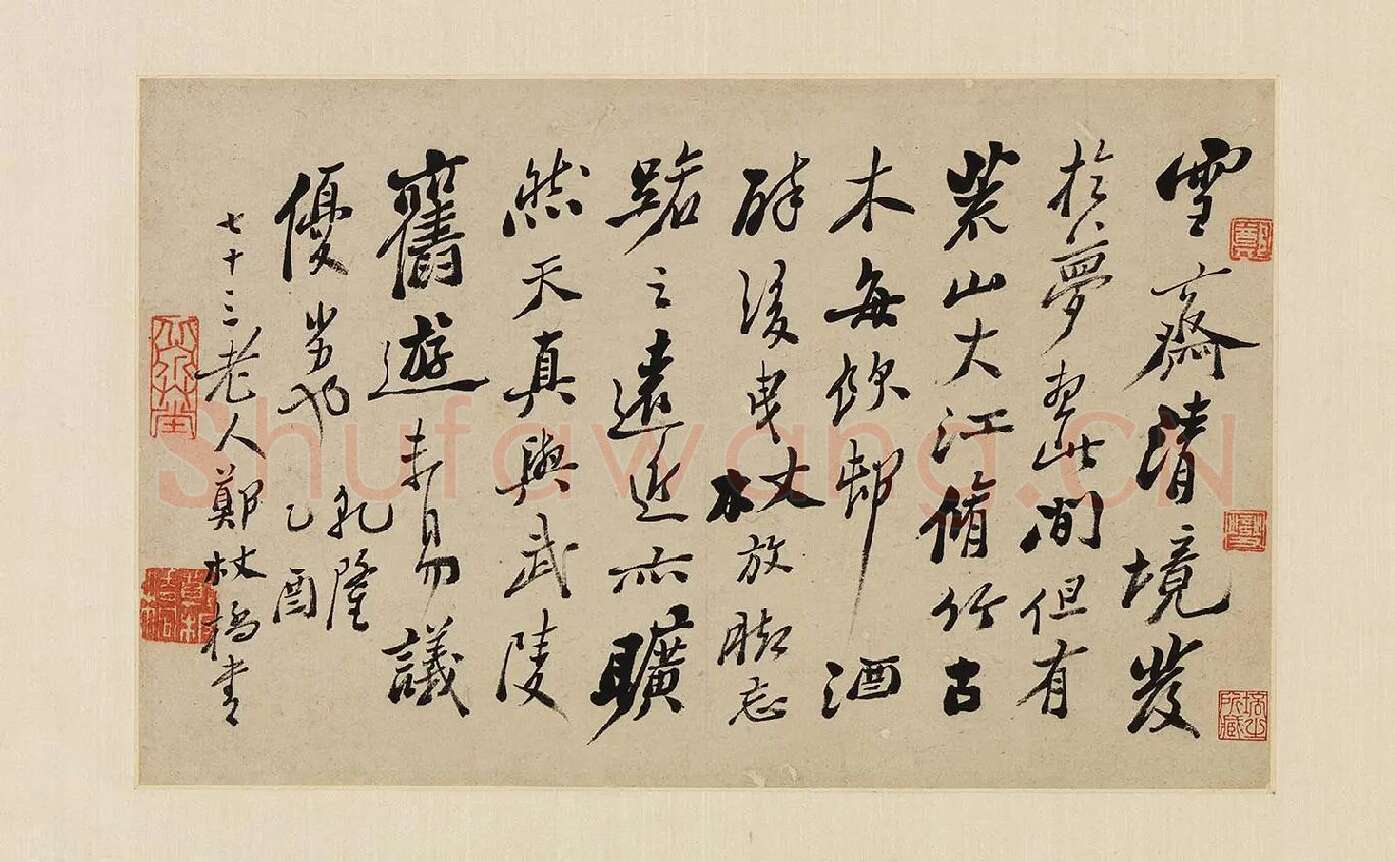 雪齋清境發
於夢想此間但有
荒山大江脩竹古
木每飲邨酒
醉後曳杖放腳忘
路之遠近亦曠
然天真與武陵
舊遊未易議
優劣也 乾隆
乙酉
七十三老人鄭板橋書
Shufawang.CN